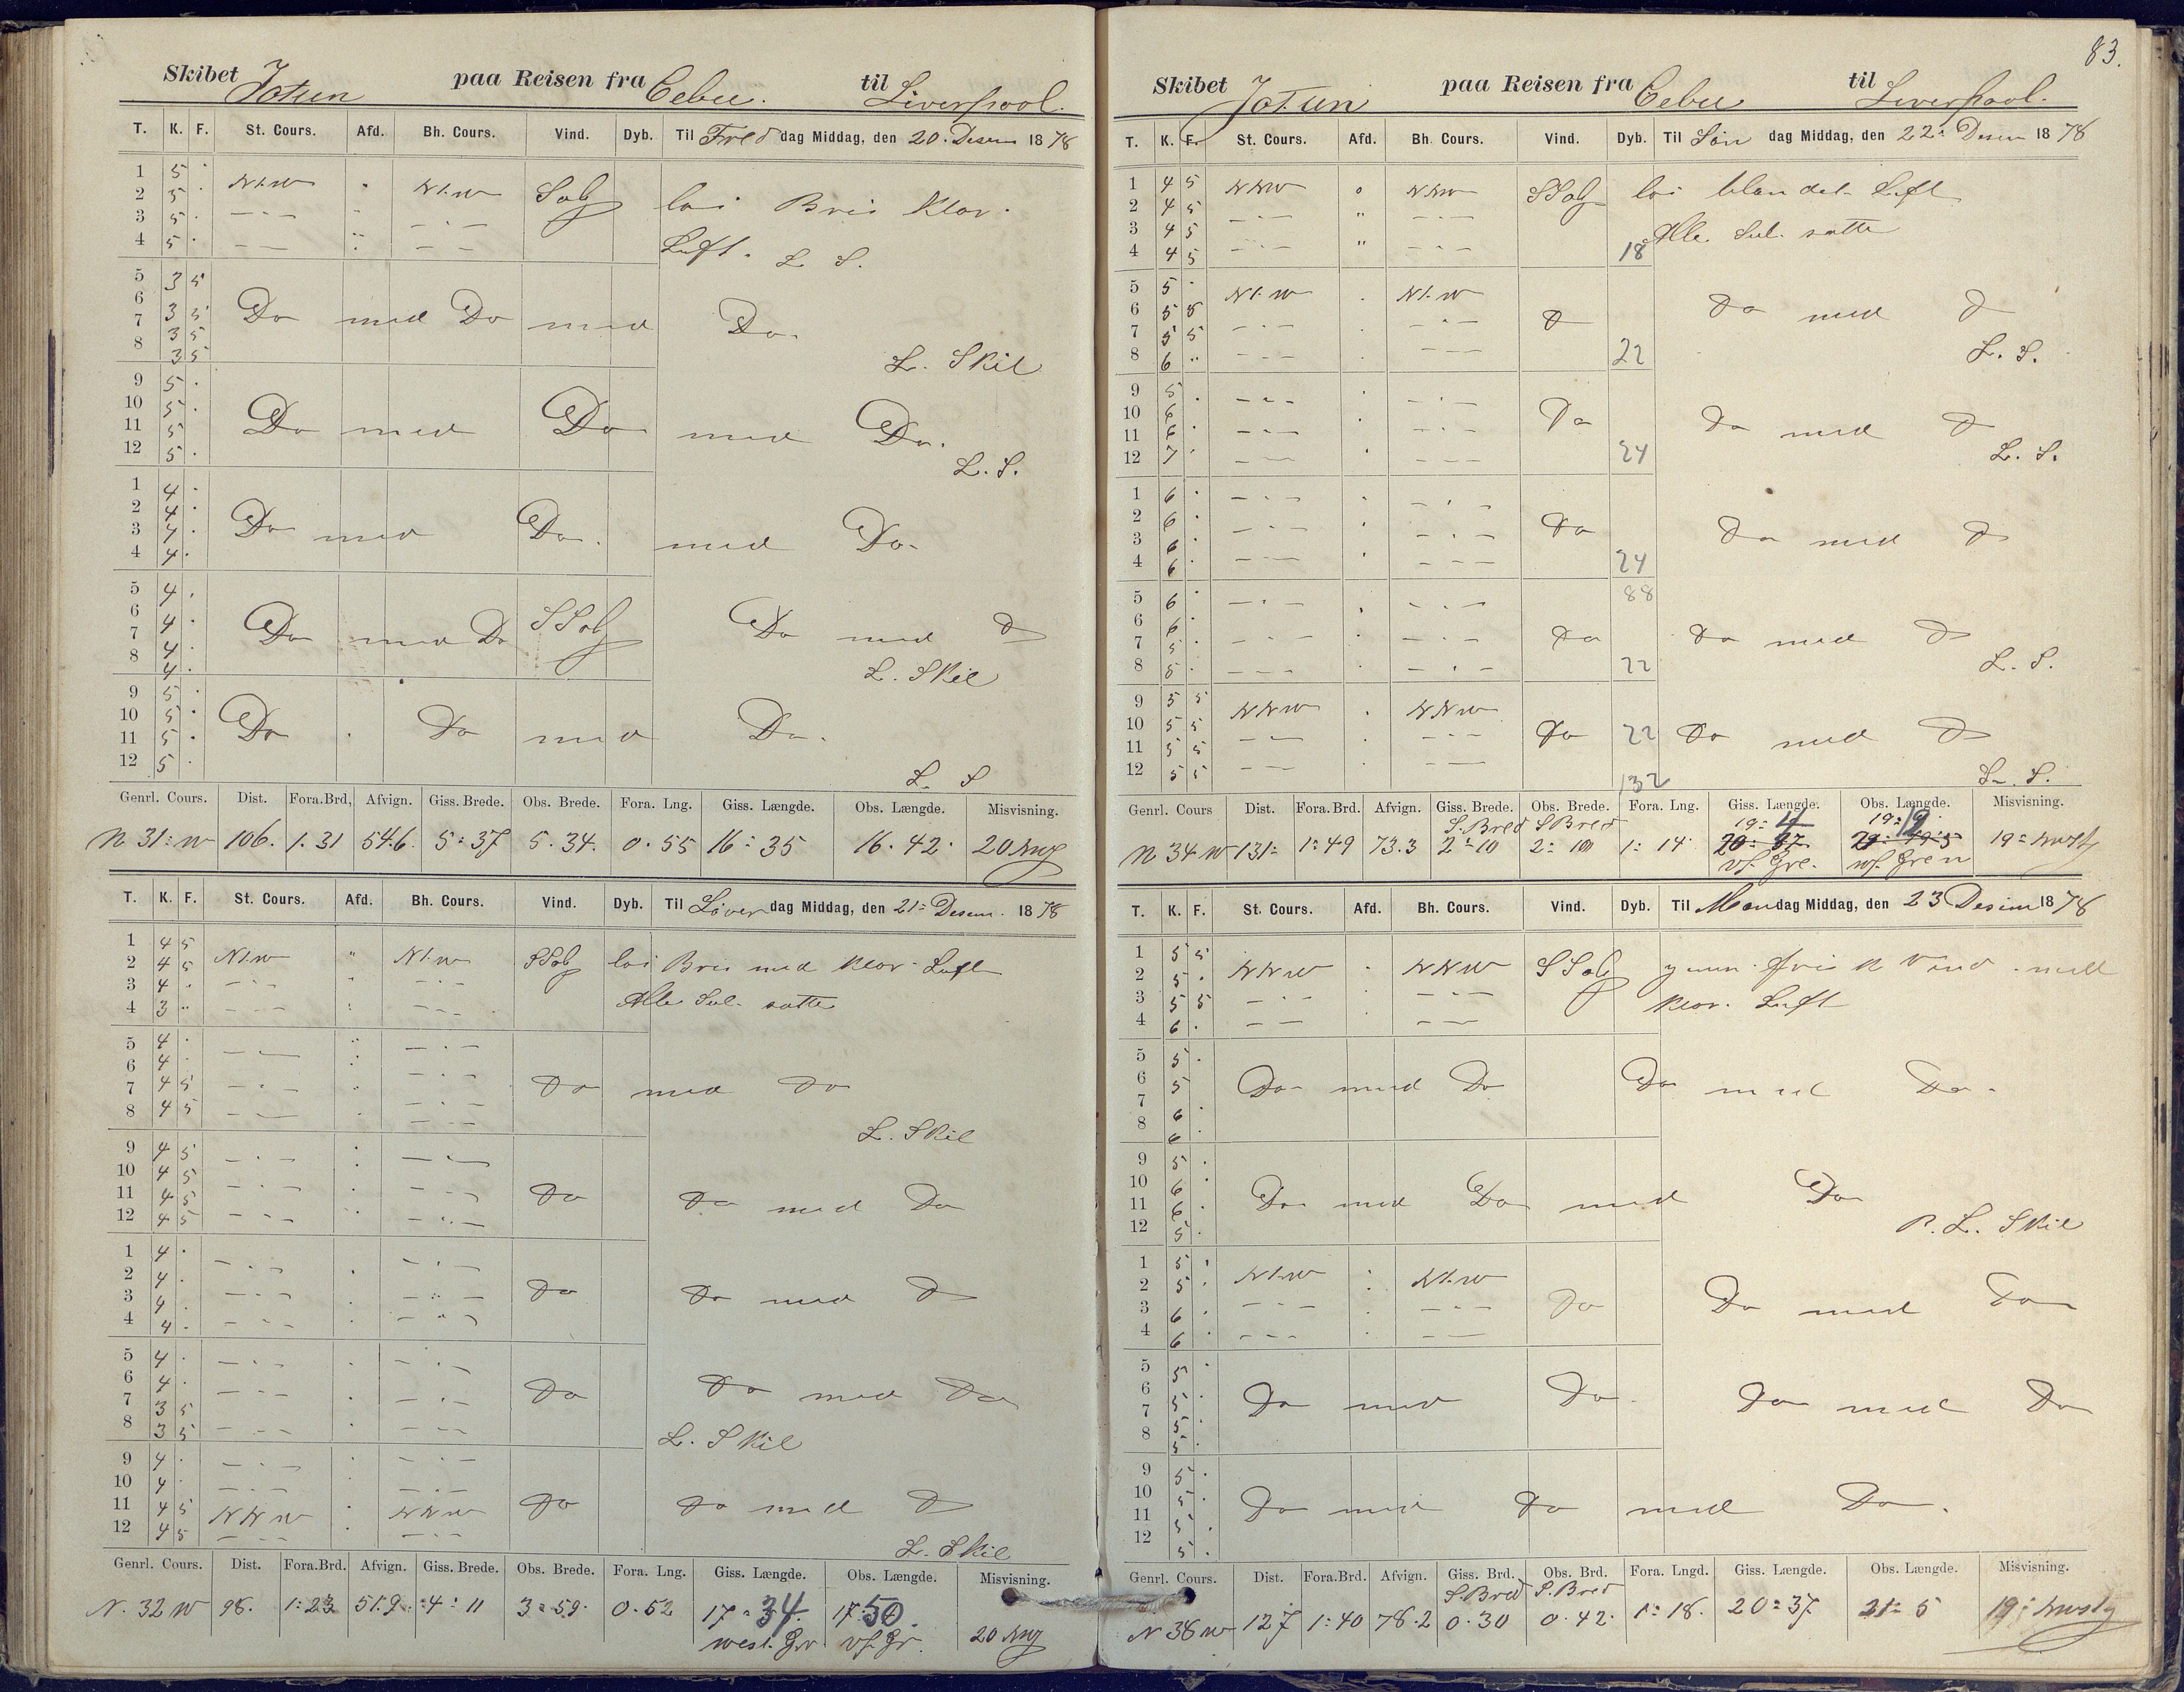 Skibet Jotun paa Reisen fra Cebu. til Liverpool.
T. K. F. St. Cours. Afd. Bh. Cours. Vind. Dyb. Til Freddag Middag, den 20. Desem 1878
1 5 . N t. W . N t. W SOlg lai Bris klar.
2 5 .
3 5 .
4 5 . Luft. L. S.
5 3 5
6 3 5 Do med Do med Do.
7 3 5
8 3 5 L. Skil
9 5 .
10 5 . Do med Do med Do.
11 5
12 5 . L. S.
1 4 .
2 4 . Do med Do. med Do.
3 4 .
4 4 .
5 4 . SSOlg
6 4 . Do med Do Do med D
7 4 .
8 4 . L. Skil
9 5 .
10 5 . Do . Do med Do.
11 5 .
12 5 . L. S
Genrl. Cours. Dist. Fora.Brd, Afvign. Giss. Brede. Obs. Brede. Fora. Lng. Giss. Længde. Obs. Længde. Misvisning.
N 31: W 106. 1.31 54.6. 5:37 5.34. 0.55 16:35 16.42. 20
T. K. F. St. Cours. Afd. Bh. Cours. Vind. Dyb. Til Löverdag Middag, den 21: Desem. 1878
1 4 5 N t. W " N t. W SSOlg lai Bris med klar Luft
2 4 5
3 4 . Alle Sul. satte
4 3 "
5 4 .
6 4 .
7 4 5 Do med Do
8 4 5 L. Skil
9 4 5
10 4 5
11 4 5 Do Do med Do
12 4 5
1 4 .
2 4 .
3 4 . Do Do med D
4 4 .
5 4 .
6 4 . Do Do med Do
7 3 5
8 3 5 L. Skil
9 4 .
10 4 .
11 4 5 NNW . NNW Do Do med D
12 4 5 L. Skil
Genrl. Cours. Dist. Fora.Brd. Afvign. Giss. Brede. Obs. Brede. Fora. Lng. Giss. Længde. Obs. Længde. Misvisning.
N. 32 W 98. 1:23 51.9 4:11 3:59. 0.52 17:34. 17.50.
west. Gr vf. Gr. 20
83.
Skibet Jotun paa Reisen fra Cebu til Liverpool.
T. K. F. St. Cours. Afd. Bh. Cours. Vind. Dyb. Til Søndag Middag, den 22: Desem 1878
1 4 5 NNW NNW SSOlg lai blandet Luft
2 4 5
3 4 5 Alle Sul. satte
4 4 5 18
5 5 . N t. W . N t. W
6 5 5 D Do med D
7 5 5
8 6 " 22 L. S.
9 5 .
10 6 . Do Do med D
11 6 .
12 7 . 24 L. S.
1 6 .
2 6 .
3 6 Do Do med D
4 6 . 24
5 6 . 88
6 6 .
7 5 . Do Do med D
8 5 . 22 L. S.
9 5 5 NNW . NNW
10 5 5 Do 22 Do med D
11 5 5
12 5 5 132 L. S.
Genrl. Cours Dist. Fora.Brd. Afvign. Giss. Brede. Obs. Brede. Fora. Lng. Giss. Længde. Obs. Længde. Misvisning.
S. Bred S Bred 19:4 19:19
N 34 W 131: 1:49 73.3 2:10 2:10 1:14. 20:37 19:
vf. Gre. vf. Gren
T. K. F. St. Cours. Afd. Bh. Cours. Vind. Dyb. Til Mandag Middag, den 23 Desem 1878
1 5 5 NNW . NNW SSOlg frisk Vind. med
2 5 .
3 5 5 klar. Luft
4 6 .
5 5 .
6 5 Do med Do Do med Do.
7 6 .
8 6
9 5 .
10 6 .
11 6 . Do med Do med Do
12 5 . L. Skil
1 5 .
2 5 . N t. W N t. W
3 6 . Do Do med Do
4 6 .
5 5 .
6 5 . Do med Do. Do med Do
7 5 .
8 5 .
9 5 .
10 5 . Do med Do med Do.
11 5 .
12 5 .
Genrl. Cours. Dist. Fora.Brd. Afvign. Giss. Brd. Obs. Brd. Fora. Lngd. Giss. Længde. Obs. Længde. Misvisning.
S. Bred S. Bred
N 38 W 127 1:40 78.2 0.30 0.42. 1:18. 20:37 21:5 19: